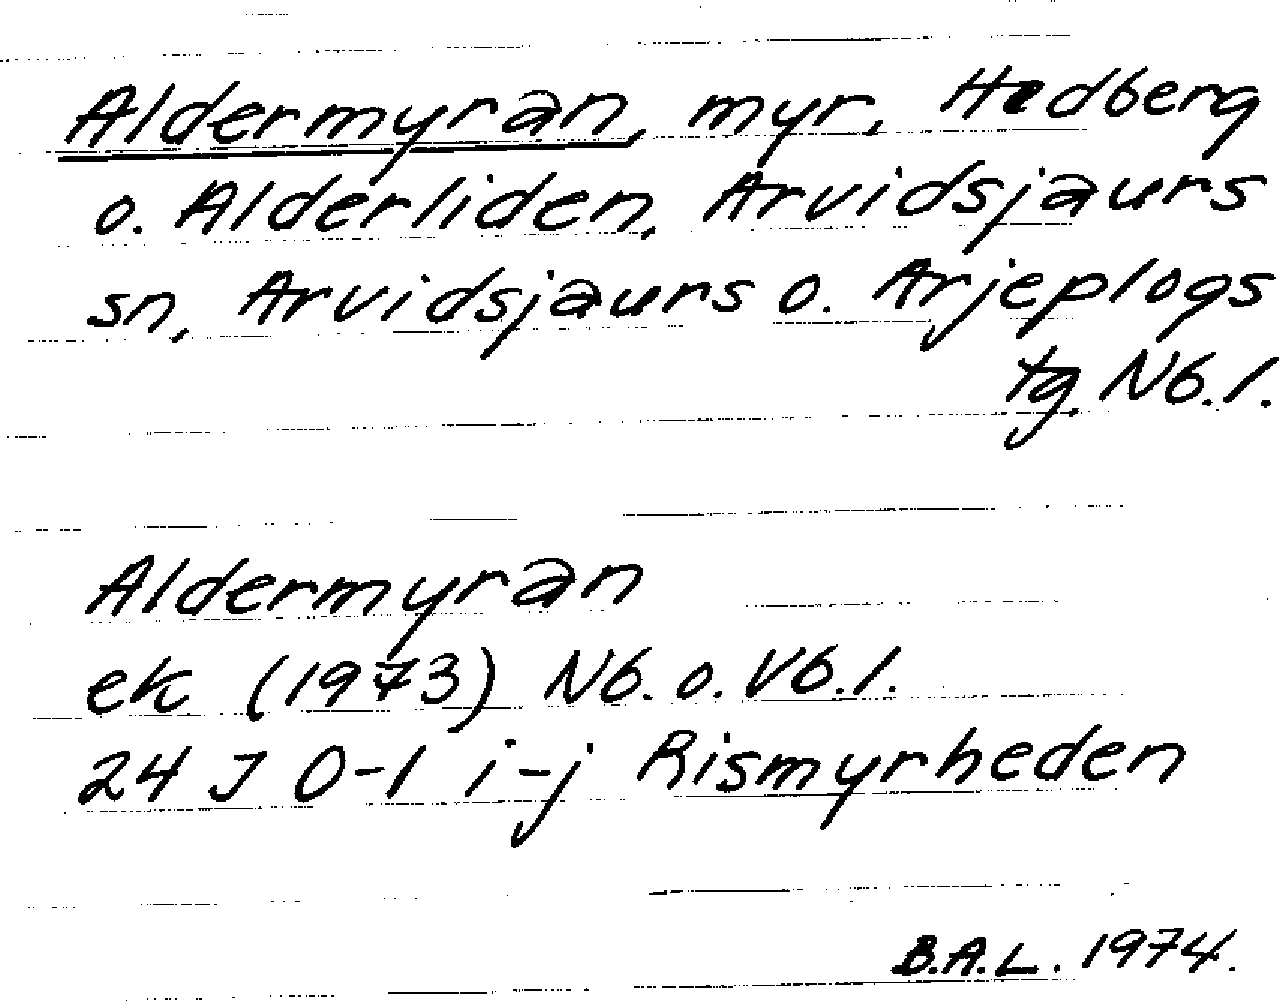 Aldermyran, myr, Hedberg
o. Alderliden, Arvidsjaurs
sn, Arvidsjaurs o. Arjeplogs
tg. Nb. l.
Aldermyran
ek (1973) Nb. o. Vb. l.
24 J 0-1 i-j Rismyrheden
B.A.L. 1974.